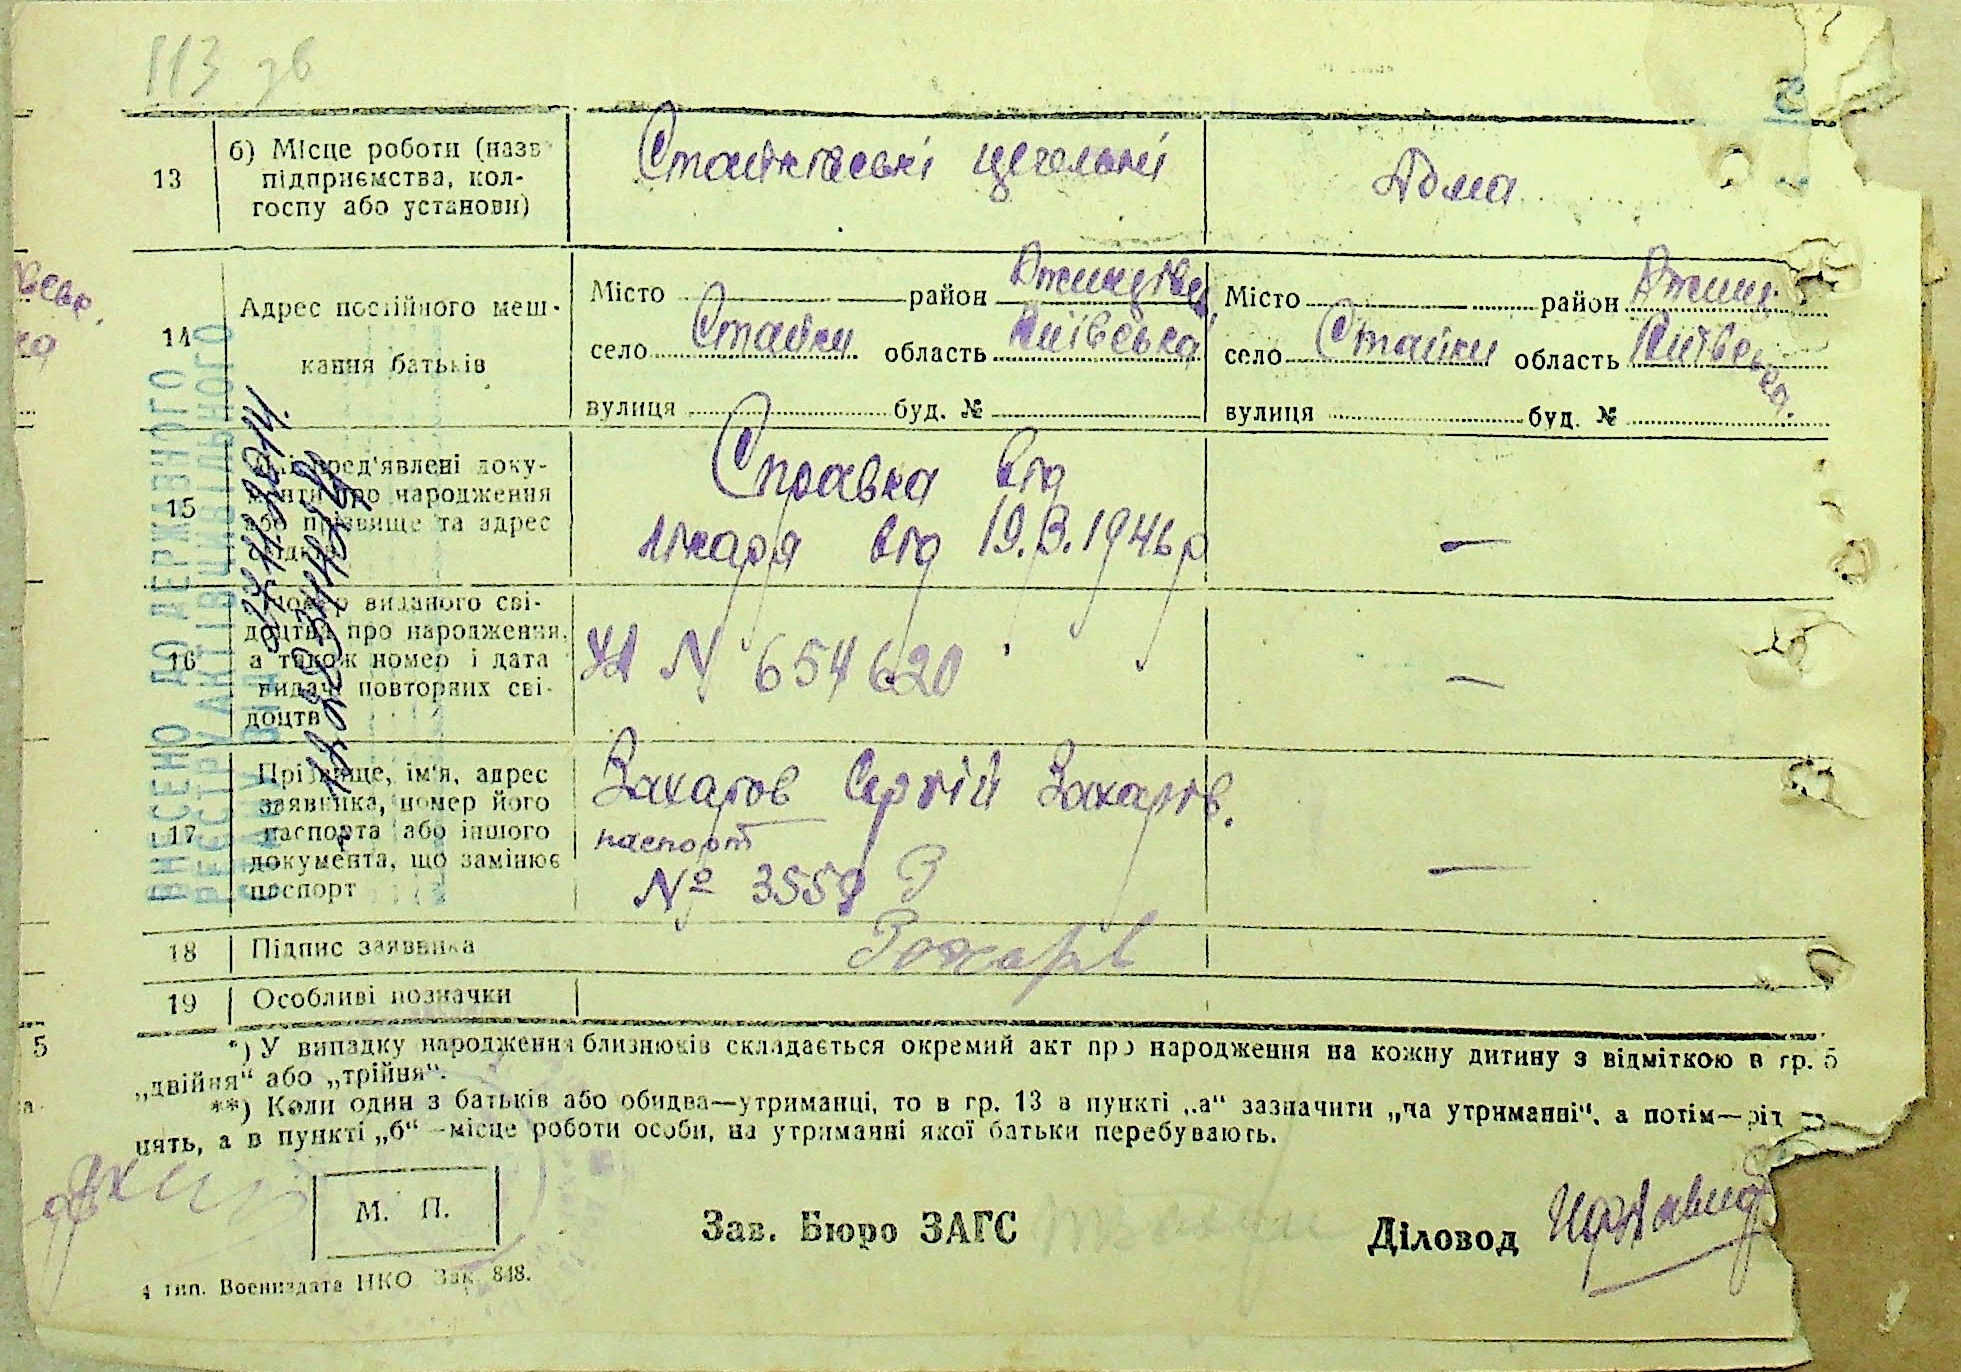 113 зв
13
б) Місце роботи (назв
підприємства, кол-
госпу або установи)
Стайківські цегельні
Дома
14
Адрес постійного меш-
кання батьків
Місто район Ржищівськ.
село Стайки область Київська
вулиця буд. №
Місто район Ржищ.
село Стайки область Київська.
вулиця буд. №
15
Які пред'явлені доку-
менти про народження
або прізвище та адрес
свідків
Справка від
лікаря від 19.В.1946 р
—
16
Номер виданого сві-
доцтва про народження,
а також номер і дата
видачі повторних сві-
доцтв
N 654620
—
17
Прізвище, ім'я, адрес
заявника, номер його
паспорта або іншого
документа, що замінює
паспорт
Захаров Сергій Захаров.
паспорт
№ 3559
—
18
Підпис заявника
Захарів
19
Особливі позначки
ВНЕСЕНО ДО ДЕРЖАВНОГО
РЕЄСТРУ АКТІВ ЦИВІЛЬНОГО
СТАНУ ВІД
*) У випадку народження близнюків складається окремий акт про народження на кожну дитину з відміткою в гр. 5
„двійня“ або „трійня“.
**) Коли один з батьків або обидва—утриманці, то в гр. 13 в пункті „а“ зазначити „на утриманні“, а потім—рід за-
нять, а в пункті „б“—місце роботи особи, на утриманні якої батьки перебувають.
М. П.
Зав. Бюро ЗАГС
Діловод
4 тип. Воениздата НКО Зак. 848.
5